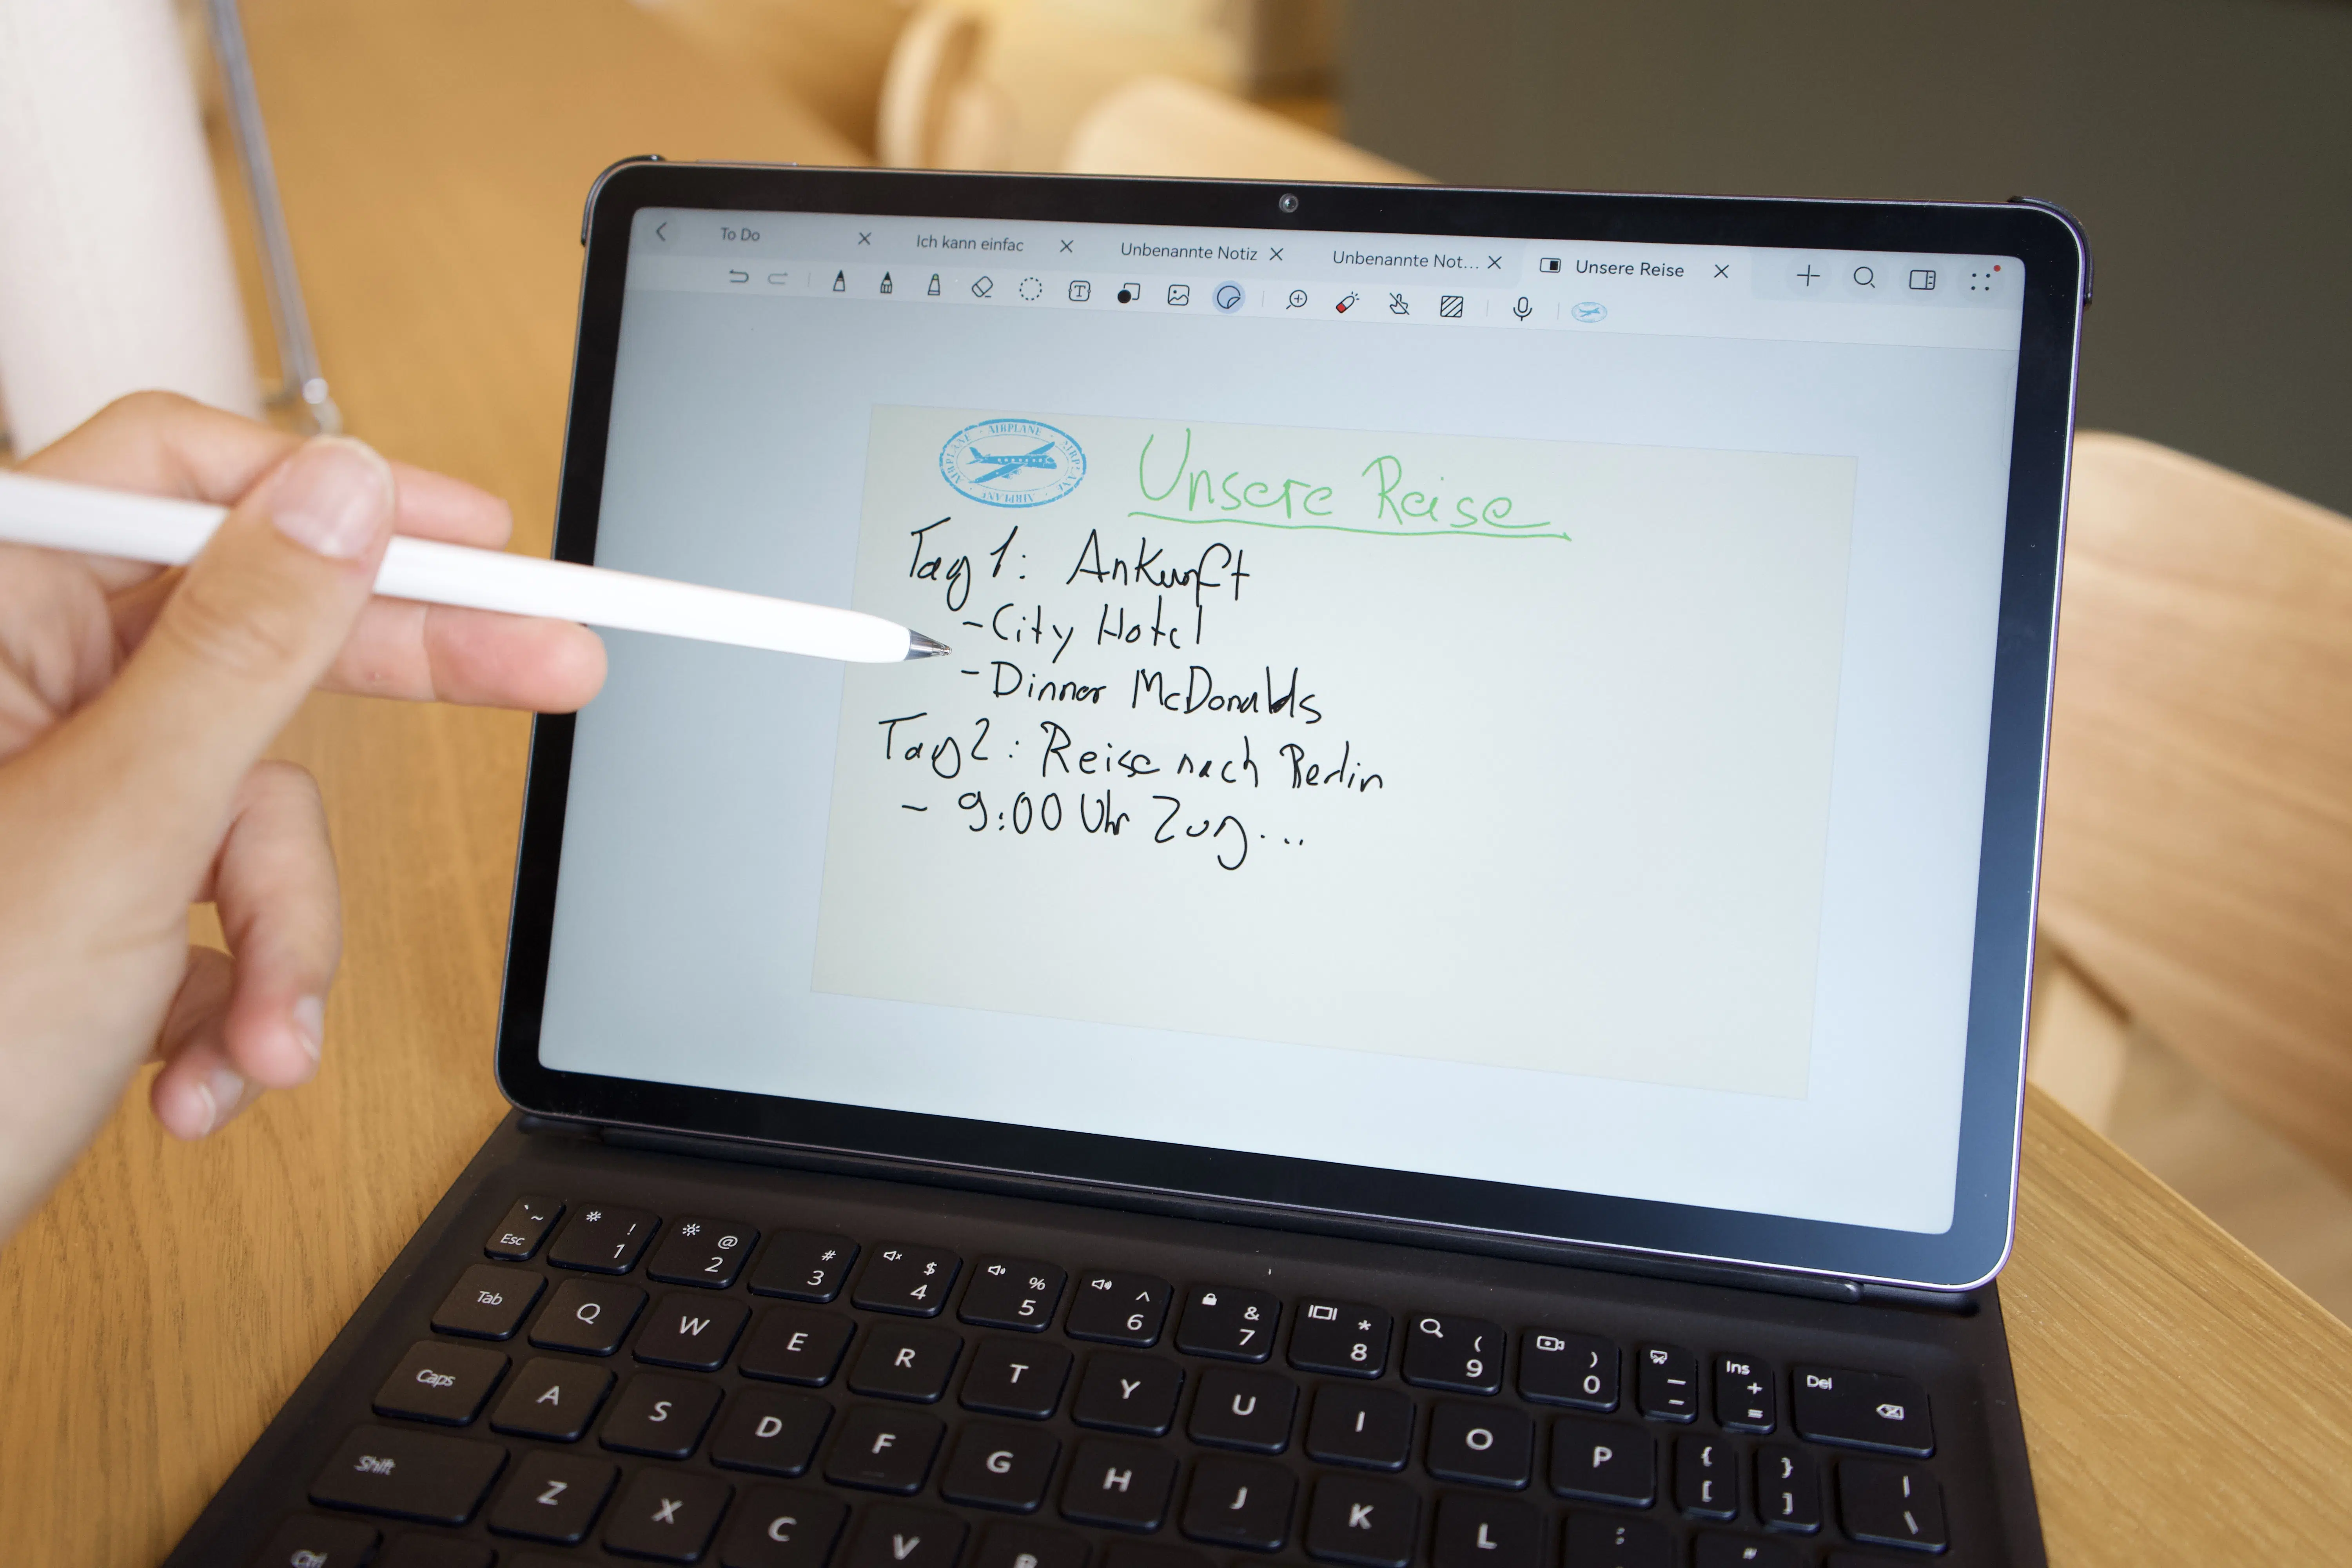 To Do
Ich kann einfac
Unbenannte Notiz
Unbenannte Not...
Unsere Reise
T
AIRPLANE · AIRPLANE · AIRPLANE · AIRPLANE
Unsere Reise
Tag 1: Ankunft
- City Hotel
- Dinner McDonalds
Tag 2: Reise nach Berlin
- 9:00 Uhr Zug...
` ~ Esc ! 1 @ 2 # 3 $ 4 % 5 ^ 6 & 7 * 8 ( 9 ) 0 _ - Ins + = Del
Tab Q W E R T Y U I O P { [ } ] | \
Caps A S D F G H J K L : ; "
Shift Z X C V B
Ctrl